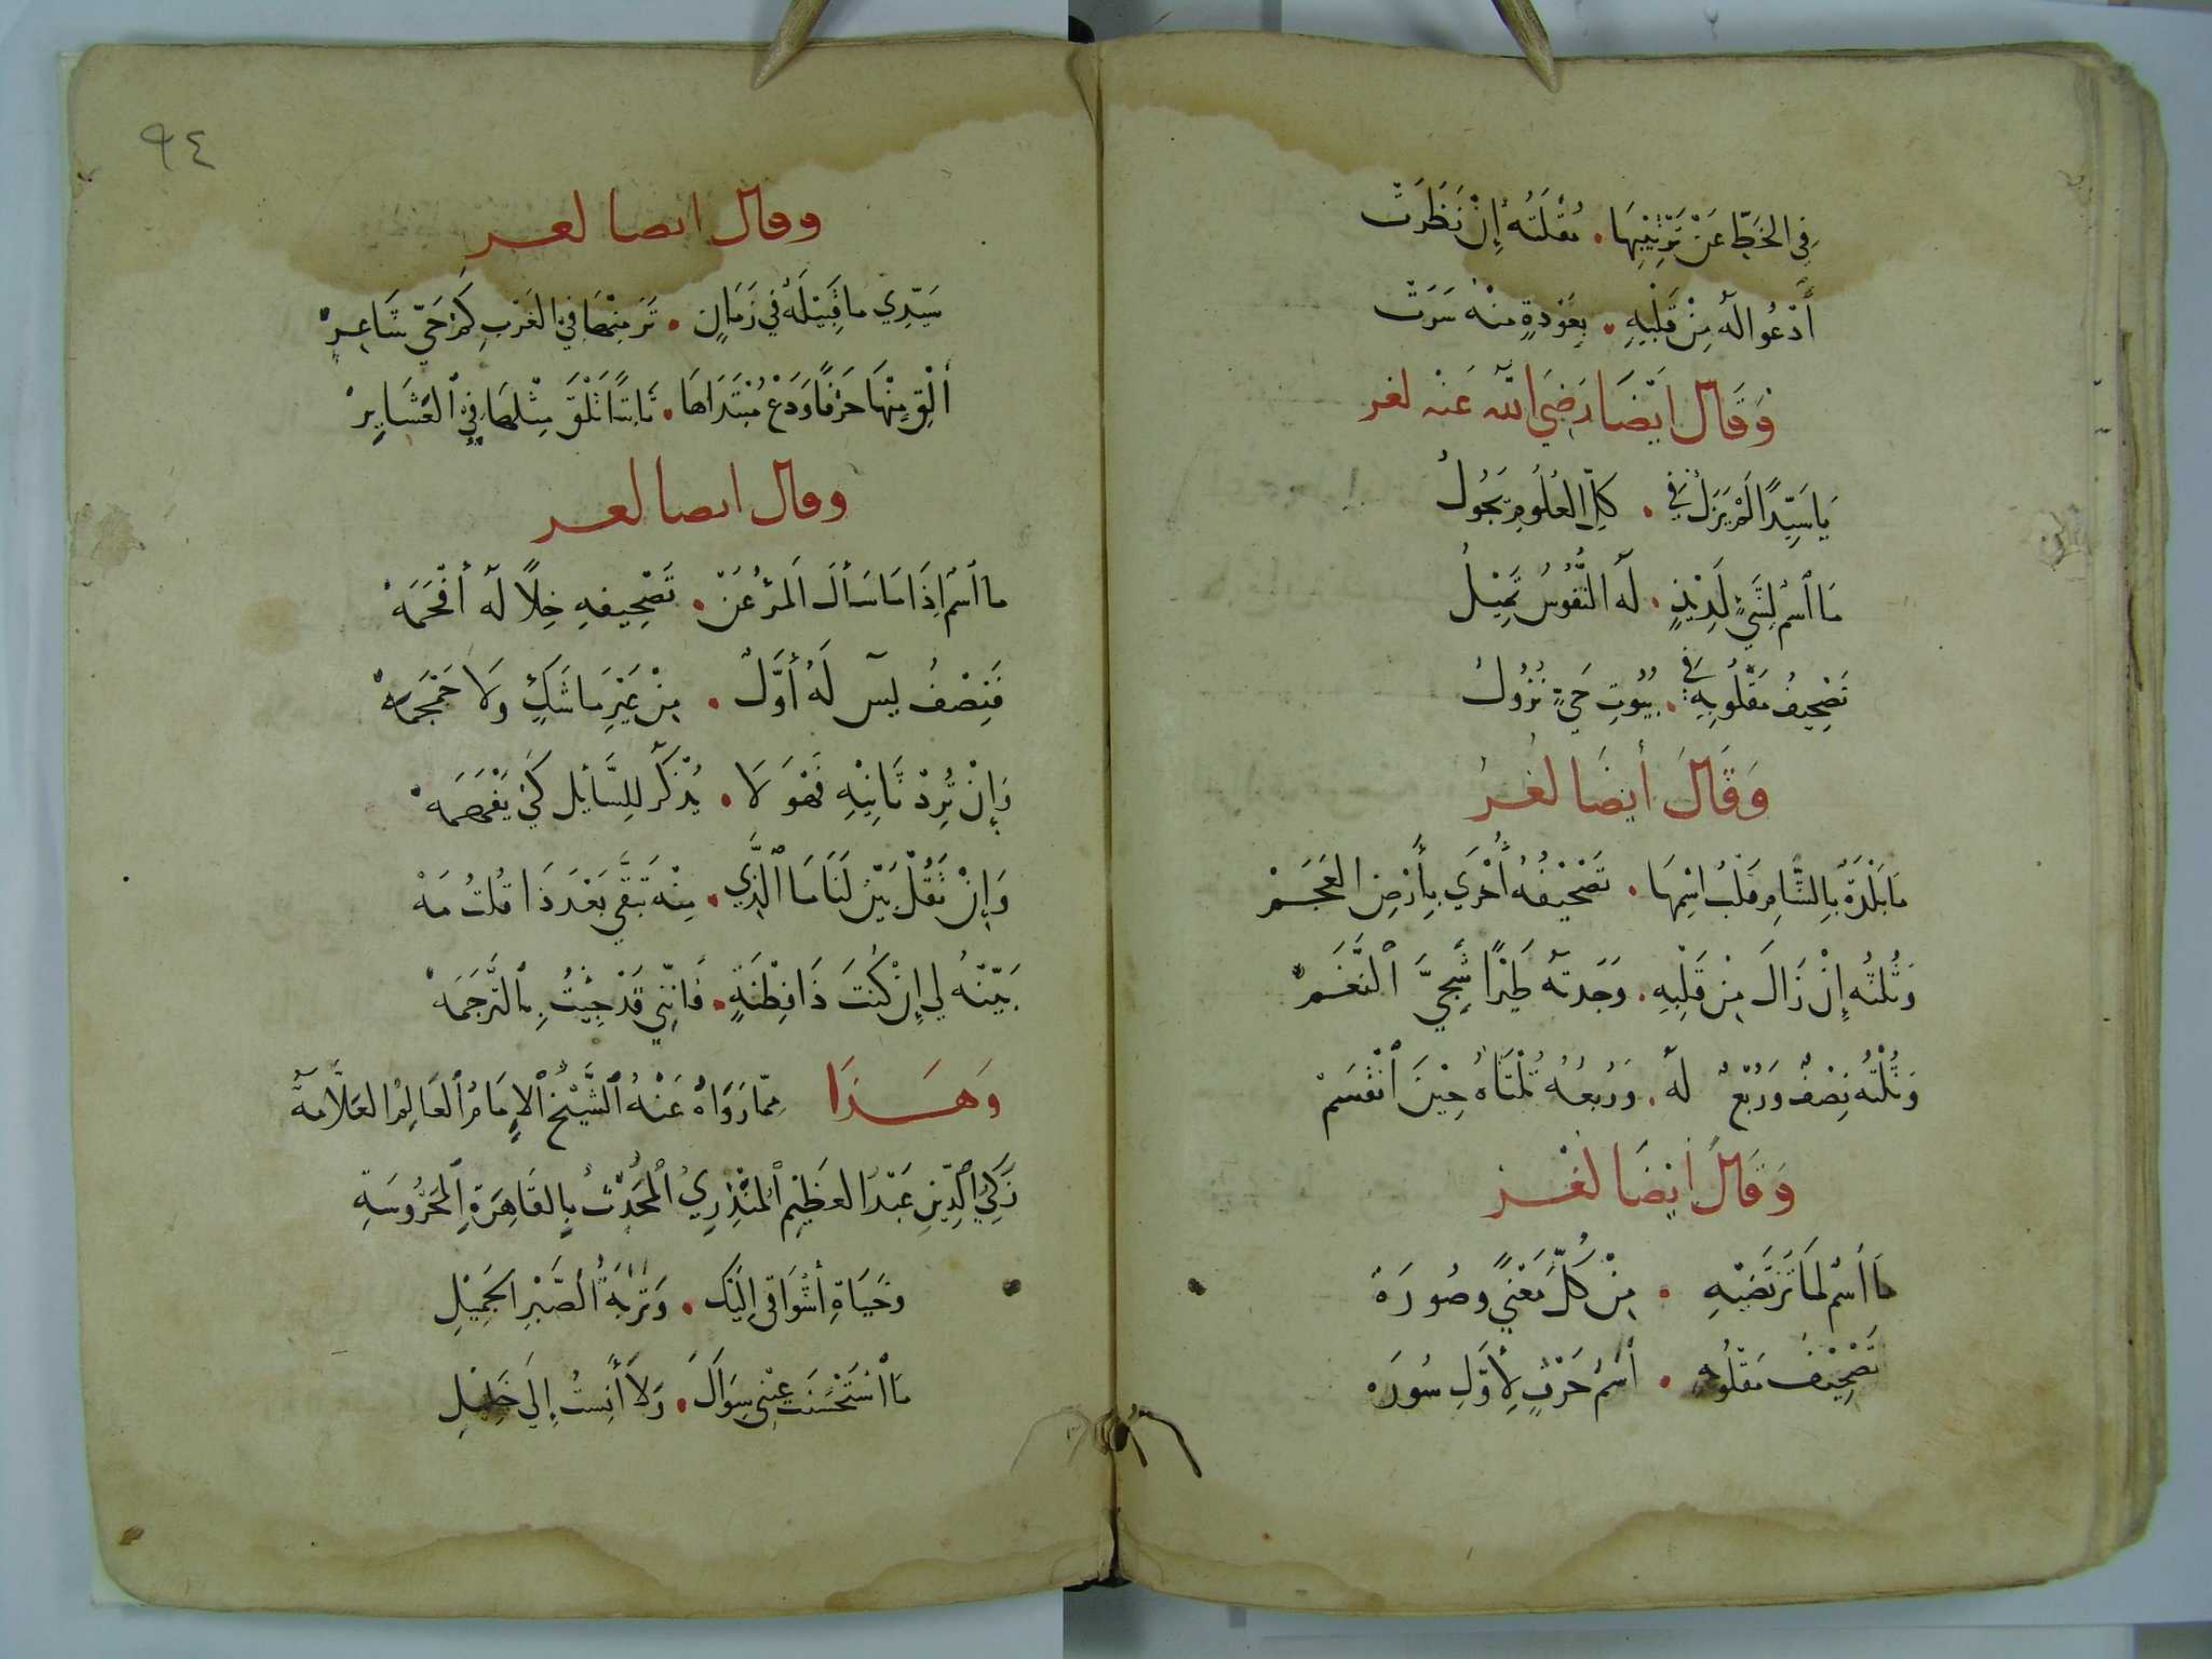 فِي الخَطِّ عَنْ تَرْتِيْبِهَا . مُقْلَتُه إِنْ نَظَرَتْ
أَدْعُو الَهُ مِنْ قَلْبِهِ . بِعَوْدةٍ مِنْه سَرَتْ
وَقَالَ ايْضَا رَضِيَ اللّه عَنْه لغز
يَا سَيِّدًا لَمْ يَزَلْ فِي . كلِّ العُلُومِ يَجُولُ
مَا ٱسْم لِشَيْءٍ لَذِيْذٍ . لَه النُّفُوسُ تَمِيْلُ
تَصْحِيفُ مَقْلُوبِهِ فِي . بُيُوتِ حَيٍّ نُزُولُ
وَقَالَ أيضَا لُغْز
مَا بَلْدَةٌ بِالشَّامِ قَلْبُ اسْمِهَا . تَصْحْيْفُهُ أُخْرَي بِأَرْضِ العَجَمْ
وَثُلثُه إِنْ زَالَ مِنْ قَلْبِهِ . وَجَدتَه طَيْرًا شَجِيَّ ٱلنَّغَمْ
وَثُلْثُه نِصْفٌ وَرُبْعٌ لَه . وَرُبعُهُ ثُلْثَاهُ حِيْنَ ٱنْقَسَمْ
وَقَالَ أيْضَا لُغْز
مَا ٱسْم لمَا تَرْتَضيْهِ . مِنْ كُلِّ مَعْنيً وصُورَهْ
تَصْحِيْفُ مَقْلُوبِهِ . ٱسْمُ حَرْفٍ لِأوَّلِ سُورَه
٩٤
وقال ايضا لغز
سَيِّدِي ما قَبِيْلَةٌ في زَمَانٍ . مَرَّ مِنْهَا فِي العَرْبِ كَمْ حَيّ شَاعِرْ
أَلْقِ مِنْهَا حَرْفًا وَدَعْ مُبْتَدَاهَا . ثَانيًا تَلْقَ مِثْلهَا فِي ٱلعَشَايِرْ
وقال ايضا لغز
ما ٱسْم إذَا مَا سَأَلَ المَرْءُ عَنْ . تَصْحِيفهِ خِلاً لَه أفْحَمَهْ
فَنِصْفُ يسٓ لَهُ أوَّلٌ . مِنْ غَيْرِ ما شَكٍّ وَلَا جَمْجَمَهْ
وَإِنْ تُرِدْ ثَانِيْهِ فَهْوَ لَا . يُذْكَر لِلسَّايل كَيْ يَفْهَمَهْ
وَإِنْ تَقُلْ بَيّنْ لَنَا مَا ٱلَّذِي . مِنْه تَبَقَّي بَعْدَ ذَا قُلتُ مَهْ
بَيّنْهُ لي إِنْ كُنتَ ذَا فِطْنَةٍ . فَإنِّني قَدْ جِيْتُ بِالتَّرجَمَهْ
وَهَـذَا مِمّا رَوَاهُ عَنْهُ ٱلشَّيْخُ ٱلإِمَامُ ٱلعَالِمُ العَلاَّمَة
زَكِيُّ ٱلدِّينِ عَبْدُ العَظِيْم ٱلمُنْذِرِيُ ٱلمُحَدِّثُ بِالقَاهِرَةِ ٱلمَحْرُوسَةِ
وَحَيَاةِ أَشْوَاقي إِلَيْكَ . وَتُرْبَةُ ٱلصَّبْرِ الجَمِيْلِ
مَا ٱسْتَحْسَنَتْ عيْنِي سِوَاكَ . وَلاَ أَنِسْتُ إِلَي خَلِيْلِ